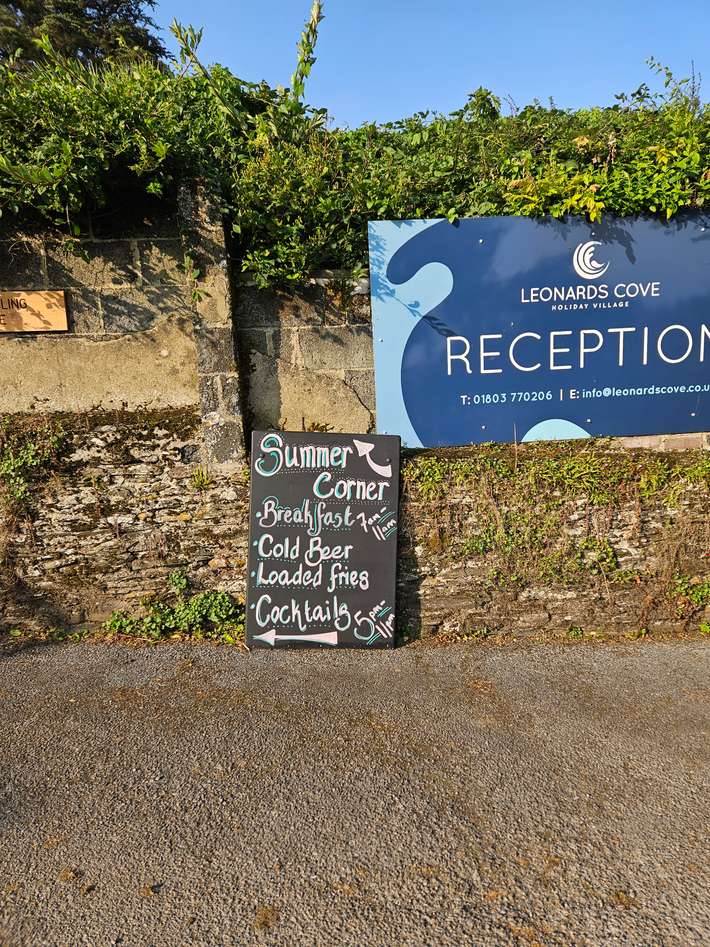 LING
E
LEONARDS COVE
HOLIDAY VILLAGE
RECEPTION
T: 01803 770206 | E: info@leonardscove.co.u
Summer
Corner
·Breakfast 7am-
11am
·Cold Beer
·Loaded fries
·Cocktails 5pm-
11am